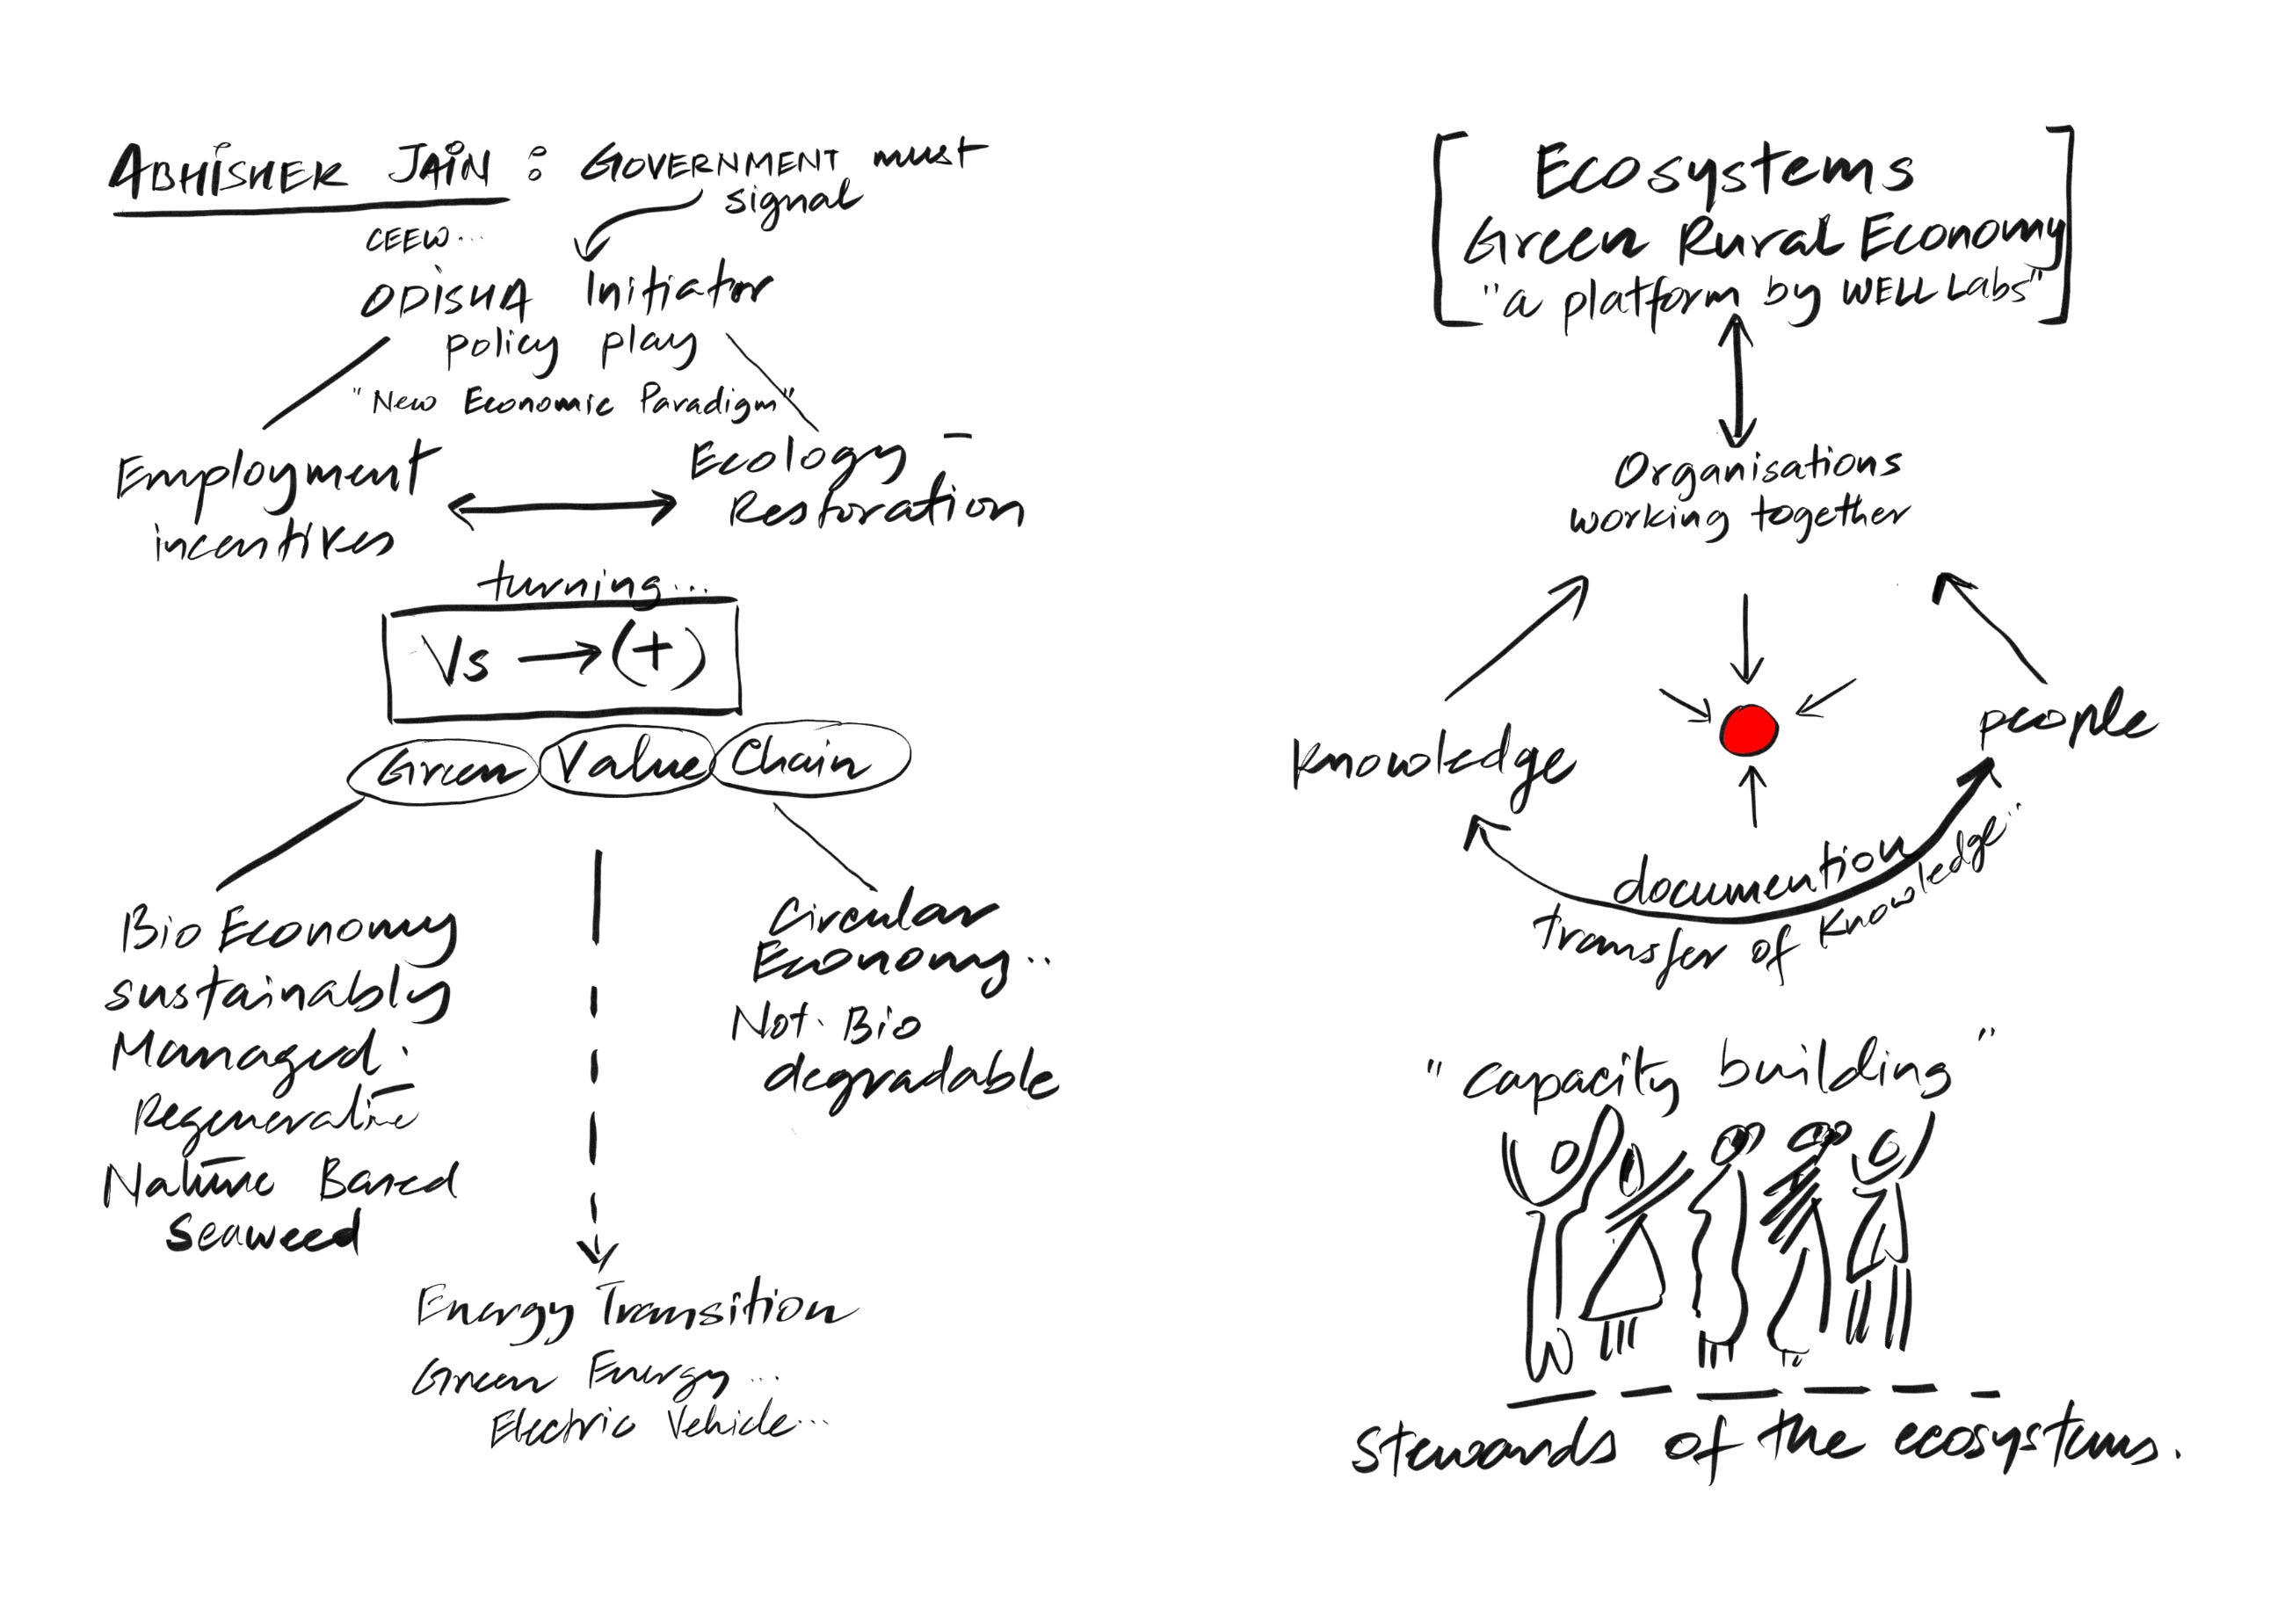 ABHISHEK JAIN : GOVERNMENT must
signal
CEEW...
ODISHA Initiator
policy play
"New Economic Paradigm"
Employment
incentives
Ecology -
Restoration
turning...
Vs → (+)
Green Value Chain
Bio Economy
sustainably
Managed.
Regenerative
Nature Based
Seaweed
Circular
Economy..
Not. Bio
degradable
Energy Transition
Green Energy...
Electric Vehicle...
Ecosystems
Green Rural Economy
"a platform by WELL Labs"
Organisations
working together
Knowledge
people
documention
transfer of Knowledge..
"capacity building"
Stewards of the ecosystems.